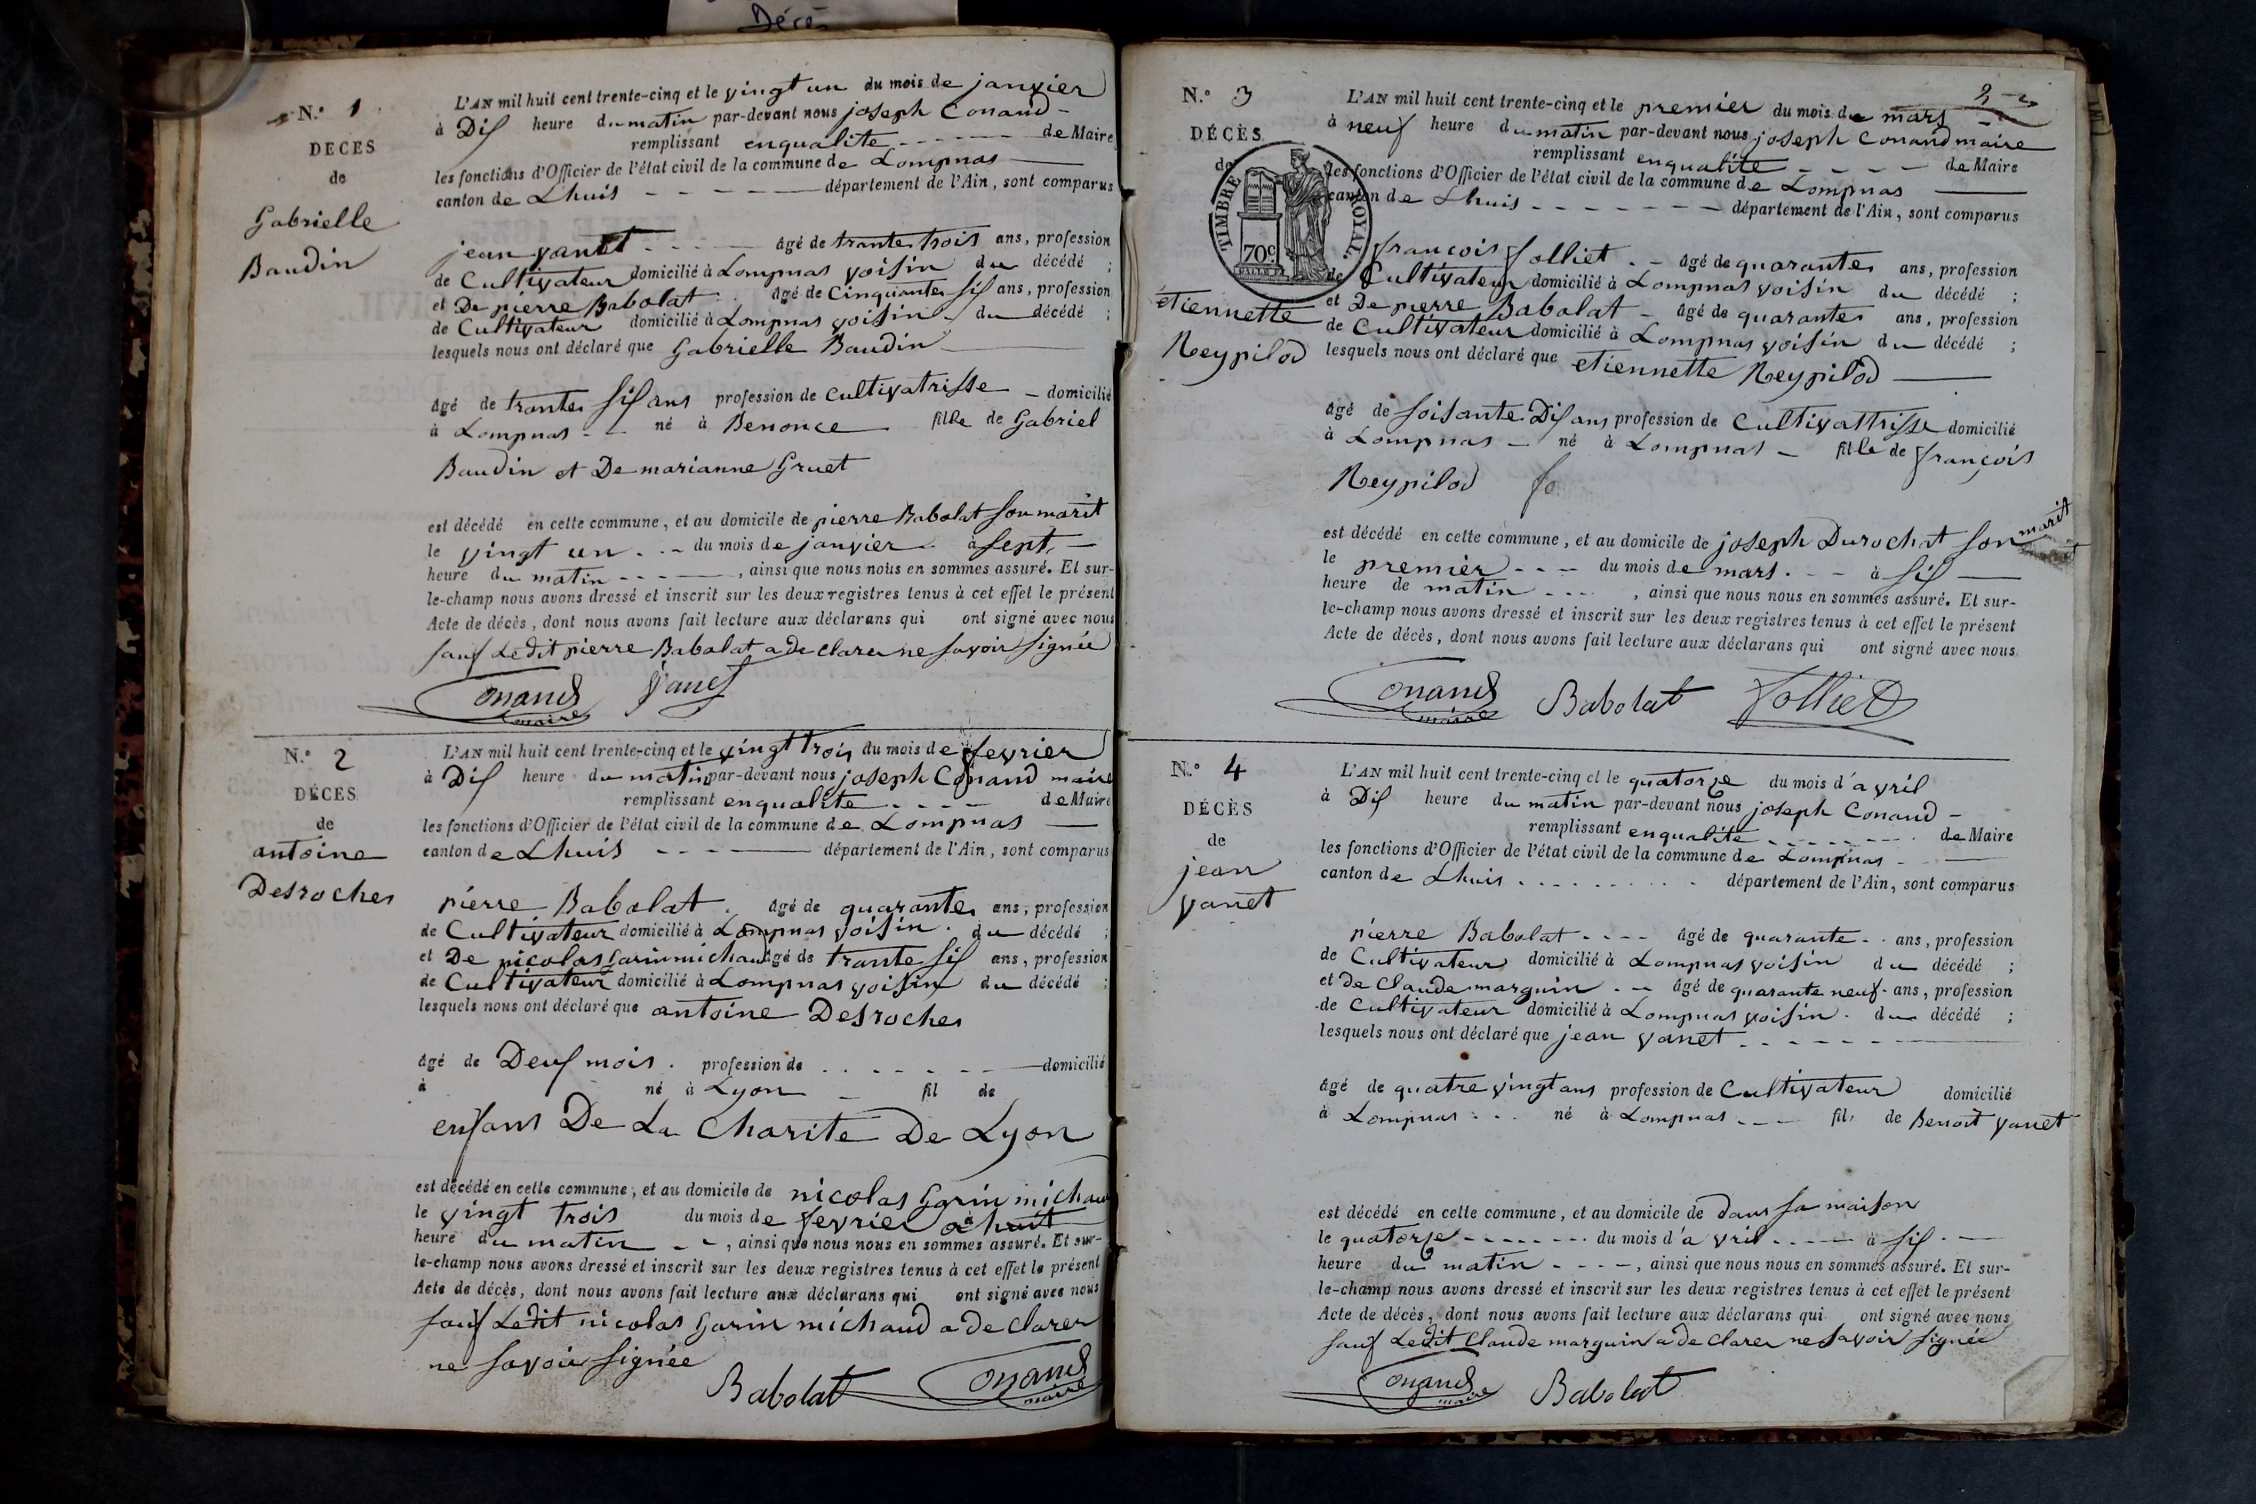 Décès
N.° 1
DÉCÈS
de
Gabrielle
Baudin
L'AN mil huit cent trente-cinq et le vingt un du mois de janvier
à Dix heure du matin par-devant nous joseph Conand
remplissant enqualite de Maire
les fonctions d'Officier de l'état civil de la commune de Lompnas
canton de Lhuis département de l'Ain, sont comparus
jean vanet âgé de trante trois ans, profession
de Cultivateur domicilié à Lompnas voisin du décédé ;
et De pierre Babolat âgé de Cinquante six ans, profession
de Cultivateur domicilié à Lompnas voisin du décédé ;
lesquels nous ont déclaré que Gabrielle Baudin
âgé de trante six ans profession de cultivatrisse domicilié
à Lompnas né à Benonce fille de Gabriel
Baudin et De marianne Gruet
est décédé en cette commune, et au domicile de pierre Babolat son marit
le vingt un du mois de janvier à sept
heure du matin, ainsi que nous nous en sommes assuré. Et sur-
le-champ nous avons dressé et inscrit sur les deux registres tenus à cet effet le présent
Acte de décès, dont nous avons fait lecture aux déclarans qui ont signé avec nous
sauf Ledit pierre Babolat a de clarer ne savoir signée
Conand maire
N.° 2
DÉCÈS
de
antoine
Desroches
L'AN mil huit cent trente-cinq et le vingt trois du mois de fevrier
à Dix heure du matin par-devant nous joseph Conand maire
remplissant enqualite de Maire
les fonctions d'Officier de l'état civil de la commune de Lompnas
canton de Lhuis département de l'Ain, sont comparus
pierre Babolat âgé de quarante ans, profession
de Cultivateur domicilié à Lompnas voisin du décédé ;
et De nicolas Garin michaud âgé de trante six ans, profession
de Cultivateur domicilié à Lompnas voisin du décédé ;
lesquels nous ont déclaré que antoine Desroches
âgé de Deux mois profession de domicilié
à né à Lyon fil de
enfant De La Charite De Lyon
est décédé en cette commune, et au domicile de nicolas Garin michaud
le vingt trois du mois de fevrier à huit
heure du matin, ainsi que nous nous en sommes assuré. Et sur-
le-champ nous avons dressé et inscrit sur les deux registres tenus à cet effet le présent
Acte de décès, dont nous avons fait lecture aux déclarans qui ont signé avec nous
sauf Ledit nicolas Garin michaud a de clarer
ne savoir signée
Babolat Conand maire
N.° 3
DÉCÈS
de
etiennette
Neypilod
TIMBRE ROYAL
70c
L'AN mil huit cent trente-cinq et le premier du mois de mars
à neuf heure du matin par-devant nous joseph Conand maire
remplissant enqualite de Maire
les fonctions d'Officier de l'état civil de la commune de Lompnas
canton de Lhuis département de l'Ain, sont comparus
françois folliet âgé de quarante ans, profession
de Cultivateur domicilié à Lompnas voisin du décédé ;
et De pierre Babolat âgé de quarante ans, profession
de Cultivateur domicilié à Lompnas voisin du décédé ;
lesquels nous ont déclaré que etiennette Neypilod
âgé de soisante Dix ans profession de Cultivattrisse domicilié
à Lompnas né à Lompnas fille de françois
Neypilod
est décédé en cette commune, et au domicile de joseph Durochat son marit
le premier du mois de mars à six
heure de matin, ainsi que nous nous en sommes assuré. Et sur-
le-champ nous avons dressé et inscrit sur les deux registres tenus à cet effet le présent
Acte de décès, dont nous avons fait lecture aux déclarans qui ont signé avec nous
Conand maire Babolat folliet
N.° 4
DÉCÈS
de
jean
vanet
L'AN mil huit cent trente-cinq et le quatorze du mois d'avril
à Dix heure du matin par-devant nous joseph Conand
remplissant enqualite de Maire
les fonctions d'Officier de l'état civil de la commune de Lompnas
canton de Lhuis département de l'Ain, sont comparus
pierre Babolat âgé de quarante ans, profession
de Cultivateur domicilié à Lompnas voisin du décédé ;
et de Claude marguin âgé de quarante neuf ans, profession
de Cultivateur domicilié à Lompnas voisin du décédé ;
lesquels nous ont déclaré que jean vanet
âgé de quatre vingt ans profession de Cultivateur domicilié
à Lompnas né à Lompnas fils de Benoit vanet
est décédé en cette commune, et au domicile de dans sa maison
le quatorze du mois d'avril à six
heure du matin, ainsi que nous nous en sommes assuré. Et sur-
le-champ nous avons dressé et inscrit sur les deux registres tenus à cet effet le présent
Acte de décès, dont nous avons fait lecture aux déclarans qui ont signé avec nous
sauf Ledit Claude marguin a de clarer ne savoir signée
Conand maire Babolat